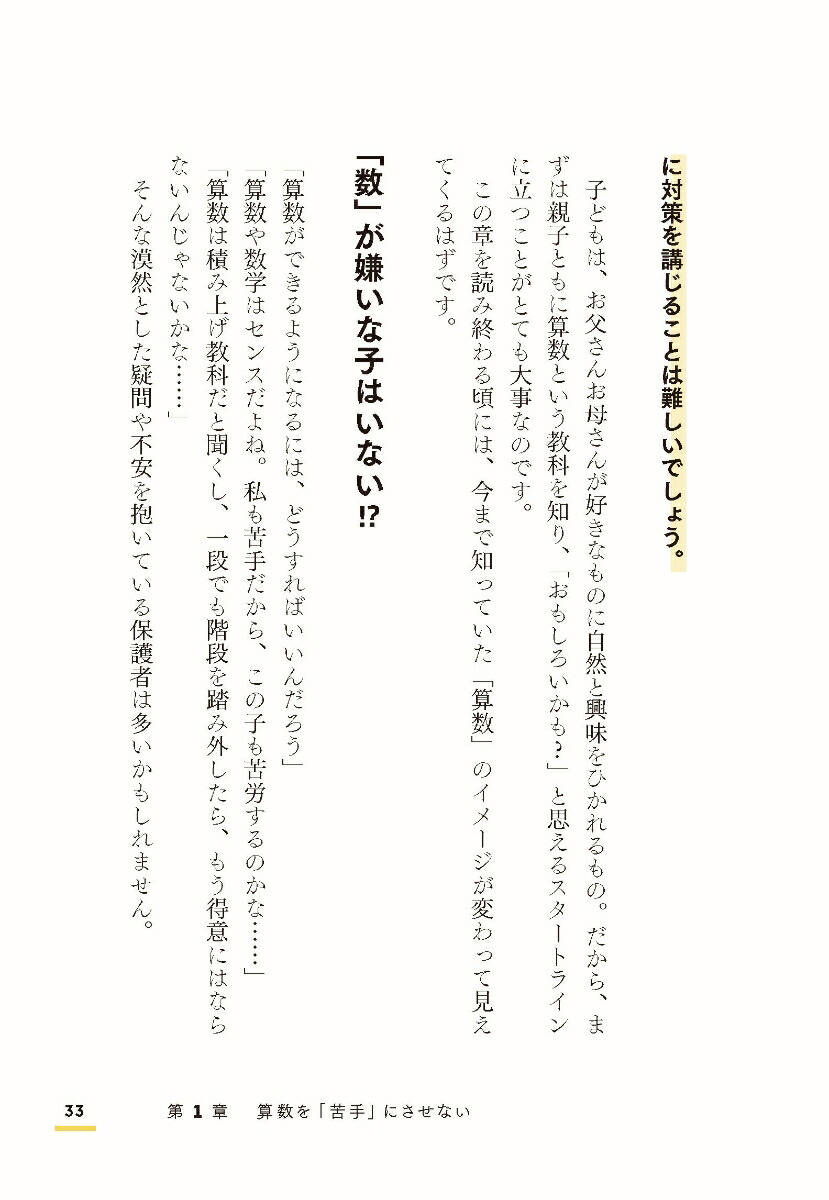 に対策を講じることは難しいでしょう。
子どもは、お父さんお母さんが好きなものに自然と興味をひかれるもの。だから、ま
ずは親子ともに算数という教科を知り、「おもしろいかも?」と思えるスタートライン
に立つことがとても大事なのです。
この章を読み終わる頃には、今まで知っていた「算数」のイメージが変わって見え
てくるはずです。
「数」が嫌いな子はいない!?
「算数ができるようになるには、どうすればいいんだろう」
「算数や数学はセンスだよね。私も苦手だから、この子も苦労するのかな……」
「算数は積み上げ教科だと聞くし、一段でも階段を踏み外したら、もう得意にはなら
ないんじゃないかな……」
そんな漠然とした疑問や不安を抱いている保護者は多いかもしれません。
33 第1章 算数を「苦手」にさせない